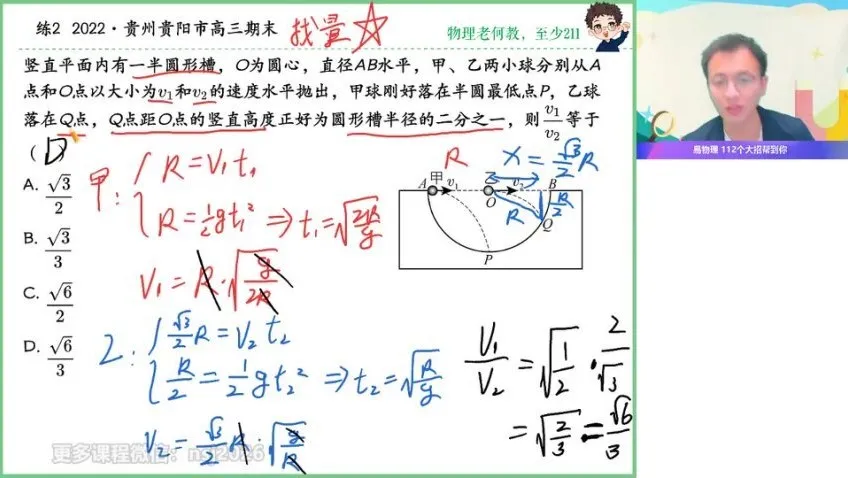 练2 2022·贵州贵阳市高三期末
找量
物理老何教,至少211
竖直平面内有一半圆形槽,O为圆心,直径AB水平,甲、乙两小球分别从A
点和O点以大小为v₁和v₂的速度水平抛出,甲球刚好落在半圆最低点P,乙球
落在Q点,Q点距O点的竖直高度正好为圆形槽半径的二分之一,则v₁/v₂等于
( D
A. √3/2
B. √3/3
C. √6/2
D. √6/3
甲:
R = v₁t₁
R = 1/2 gt₁² ⇒ t₁ = √(2R/g)
V₁ = R·√(g/2R)
乙:
√3/2 R = V₂t₂
R/2 = 1/2 gt₂² ⇒ t₂ = √(R/g)
V₂ = √3/2 R·√(g/R)
R
x = √3/2 R
A 甲 v₁ 乙 O v₂ B
R R/2
Q
P
V₁/V₂ = √(1/2) · 2/√3
= √(2/3) = √6/3
易物理 112个大招帮到你
更多课程微信:nsj2026